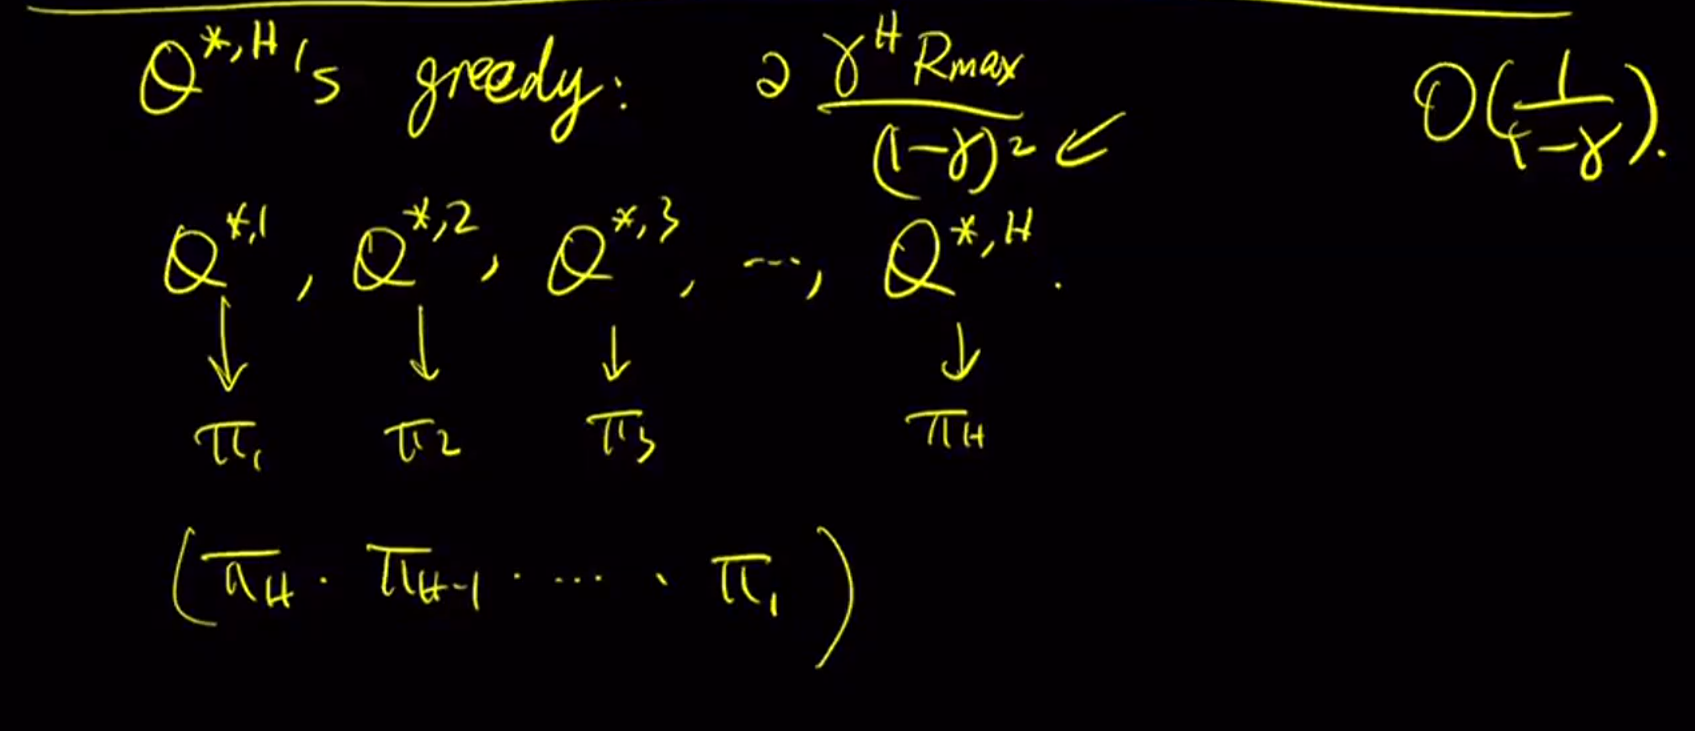 Q^{*,H}'s greedy: 2 γ^H Rmax / (1-γ)^2 ↙ O(1/(1-γ)).
Q^{*,1}, Q^{*,2}, Q^{*,3}, ..., Q^{*,H}.
↓ ↓ ↓ ↓
π_1 π_2 π_3 π_H
(π_H . π_{H-1} . ... . π_1)